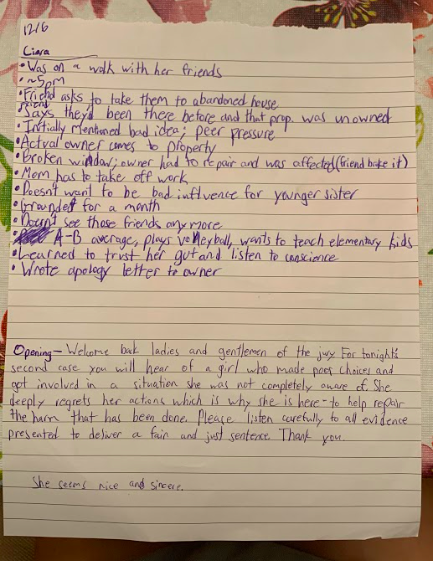 12/6
Ciara
• Was on a walk with her friends
• ~5pm
• Friend asks to take them to abandoned house
• friend says they'd been there before and that prop. was unowned
• Initially mentioned bad idea; peer pressure
• Actual owner comes to property
• Broken window; owner had to repair and was affected (friend broke it)
• Mom has to take off work
• Doesn't want to be bad influence for younger sister
• Grounded for a month
• Doesn't see those friends anymore
• A-B average, plays volleyball, wants to teach elementary kids
• Learned to trust her gut and listen to conscience
• Wrote apology letter to owner
Opening - Welcome back ladies and gentlemen of the jury. For tonight's
second case you will hear of a girl who made poor choices and
got involved in a situation she was not completely aware of. She
deeply regrets her actions which is why she is here - to help repair
the harm that has been done. Please listen carefully to all evidence
presented to deliver a fair and just sentence. Thank you.
She seems nice and sincere.